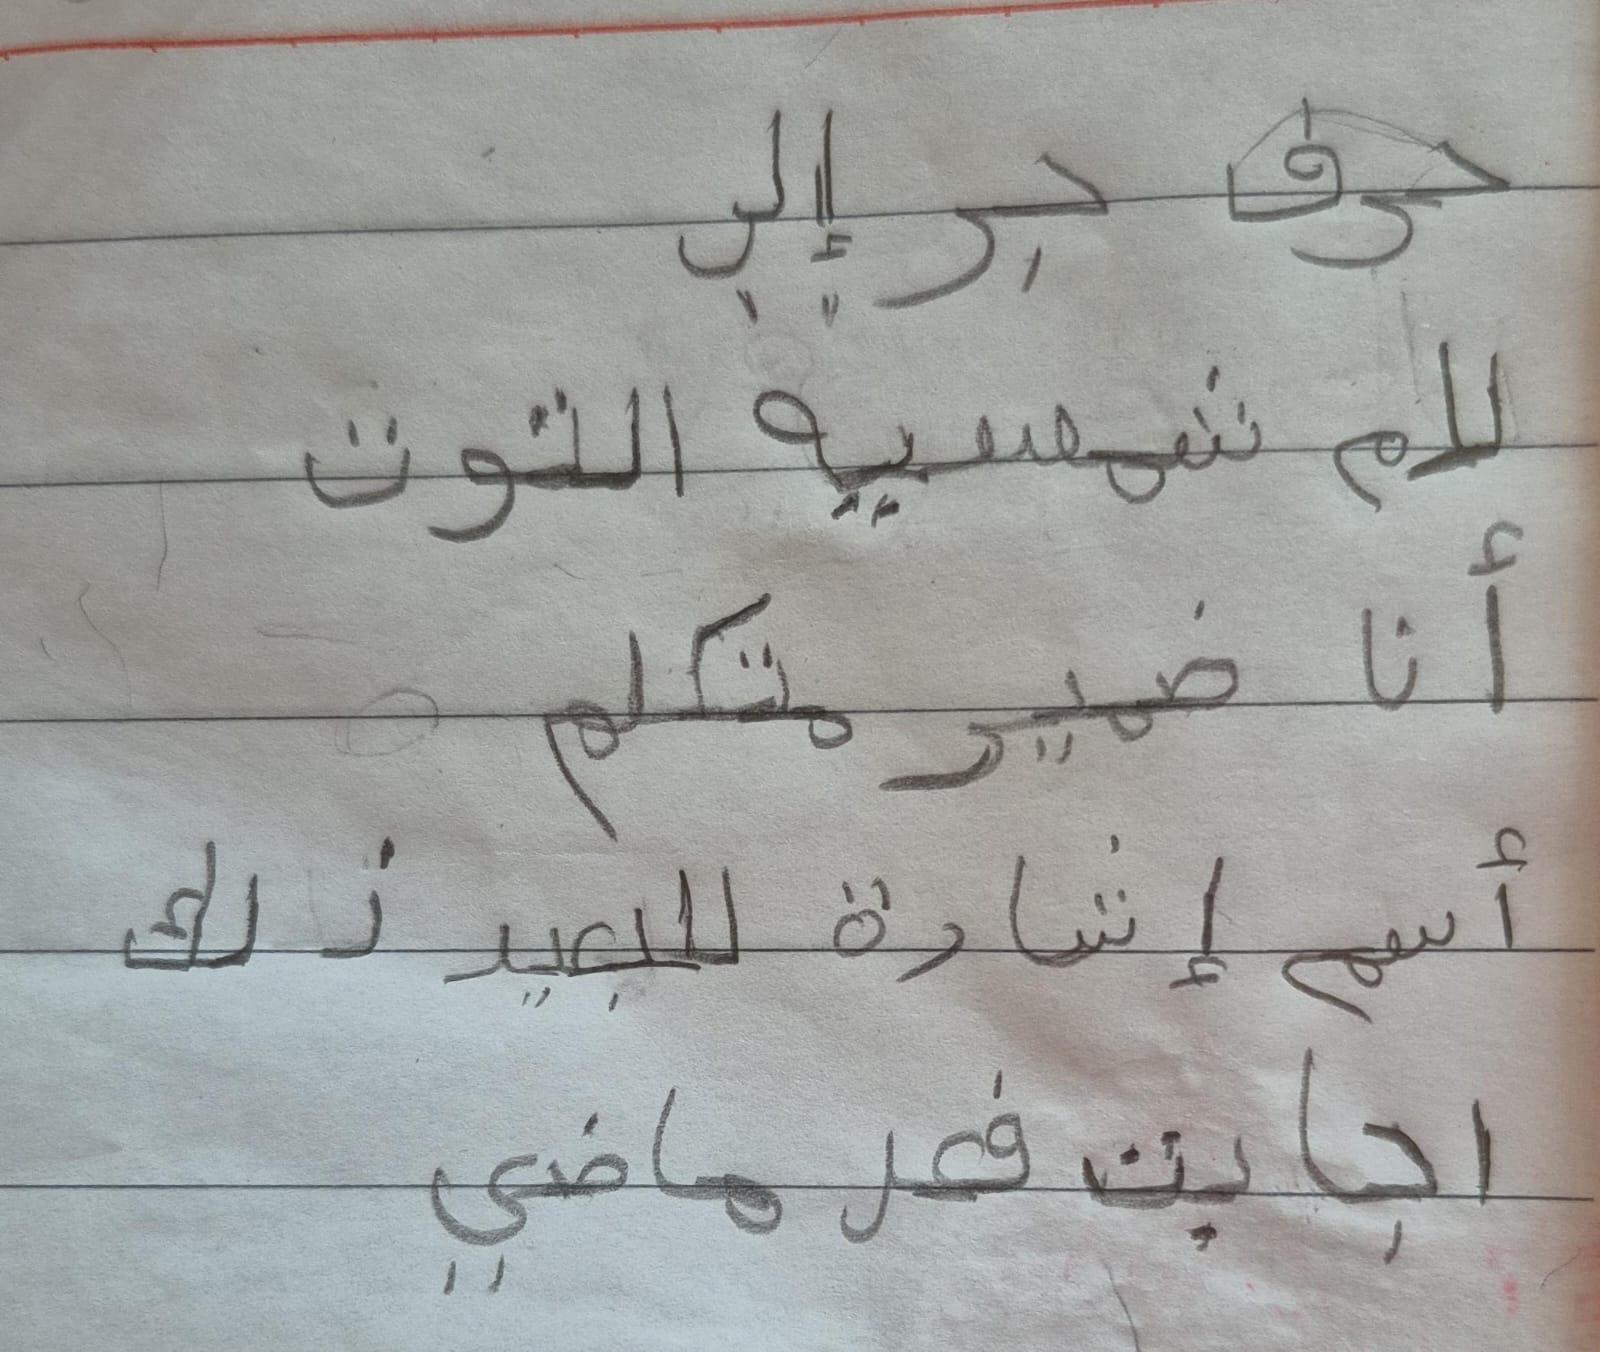 حرف جر إلي
للم شمسيه التوت
أنا ضمير متكلم
أسم إشارة للبعيد ذلك
اجابت فعل ماضي